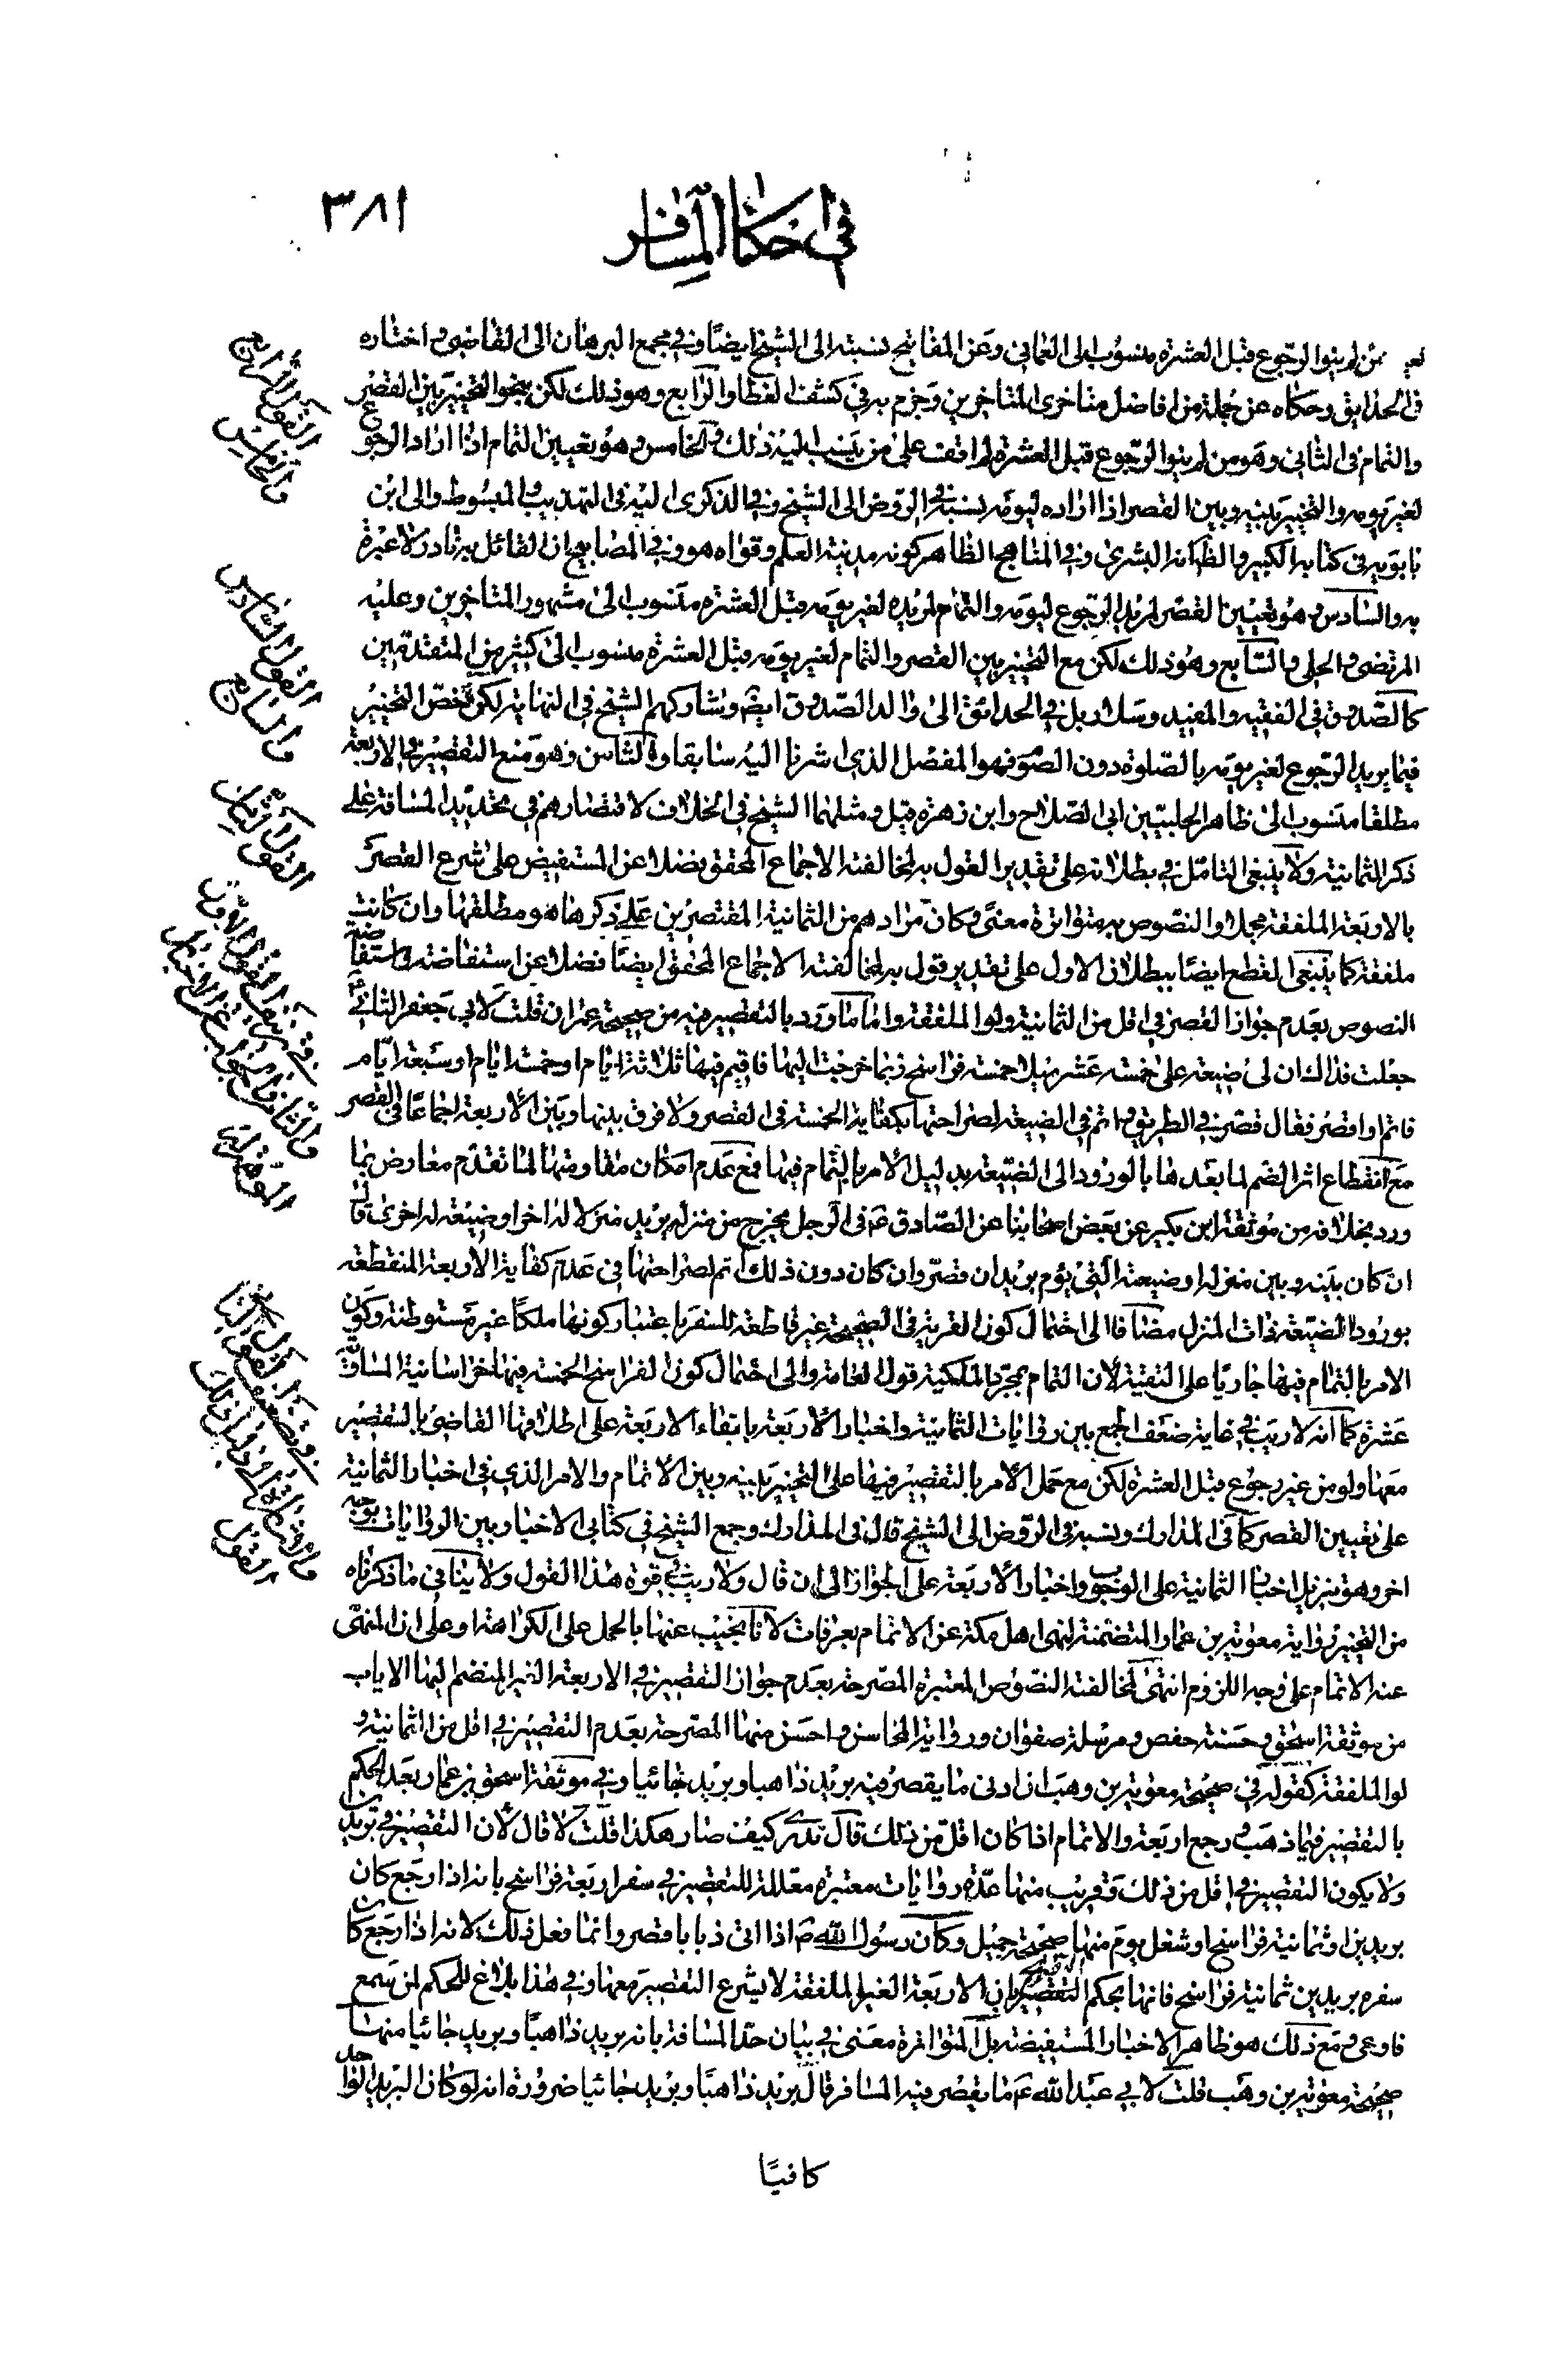 في احكام المسافر
٣٨١
ممن لم ينو الرجوع قبل العشرة منسوب الى العماني وعن المفاتيح نسبته الى الشيخ ايضا وفي مجمع البرهان الى القاضي واختاره
في الحدايق وحكاه عن جملة من افاضل متاخري المتاخرين وجزم به في كشف الغطا والرابع وهو ذلك لكن بنحو التخيير بين القصر
والتمام في الثاني وهو من لم ينو الرجوع قبل العشرة لم اقف على من ينسب اليه ذلك والخامس وهو تعيين التمام اذا اراد الرجوع
لغير يومه والتخيير بينه وبين القصر اذا اراده ليومه نسبه في الروض الى الشيخ وفي الذكرى اليه في التهذيب والمبسوط والى ابن
بابويه في كتابه الكبير والظ انه البشرى وفي المناهج الظاهر كونه مدينة العلم وقواه هو وفي المصابيح ان القائل به نادر لا عبرة
به والسادس وهو تعيين القصر لمريد الرجوع ليومه والتمام لمريده لغير يومه قبل العشرة منسوب الى مشهور المتاخرين وعليه
المرتضى والحلى والسابع وهو ذلك لكن مع التخيير بين القصر والتمام لغير يومه قبل العشرة منسوب الى كثير من المتقدمين
كالصدوق في الفقيه والمفيد وسلار بل في الحدائق الى والد الصدوق ايضا وشاركهم الشيخ في النهاية لكن خص التخيير
فيما يريد الرجوع لغير يومه بالصلوة دون الصوم فهو المفصل الذي اشرنا اليه سابقا والثامن وهو منع التقصير في الاربعة
مطلقا منسوب الى ظاهر الحلبيين ابي الصلاح وابن زهرة قيل ومثلهما الشيخ في الخلاف لاقتصارهم في تحديد المسافة على
ذكر الثمانية ولا ينبغي التامل في بطلانه على تقدير القول به لمخالفته الاجماع المحقق فضلا عن المستفيض على شرع القصر
بالاربعة الملفقة مجملا والنصوص به متواترة معنى وكان مرادهم من الثمانية المقتصرين على ذكرها هو مطلقها وان كانت
ملفقة كما ينبغي القطع ايضا ببطلان الاول على تقدير قول به لمخالفته الاجماع المحقق ايضا فضلا عن استفاضته واستفاضة
النصوص بعدم جواز القصر في اقل من الثمانية ولو الملفقة واما ما ورد بالتقصير فيه من صحيحة عمران قلت لابي جعفر الثاني ع
جعلت فداك ان لي ضيعة على خمسة عشر ميلا خمسة فراسخ ربما خرجت اليها فاقيم فيها ثلاثة ايام او خمسة ايام او سبعة ايام
فاتم او اقصر فقال قصر في الطريق واتم في الضيعة لصراحتها بكفاية الخمسة في القصر ولا فرق بينها وبين الاربعة اجماعا في القصر
مع انقطاع اثر الضم لما بعدها بالورود الى الضيعة بدليل الامر بالتمام فيها فمع عدم امكان مقاومتها لما تقدم معارض بما
ورد بخلافه من موثقة ابن بكير عن بعض اصحابنا عن الصادق ع في الرجل يخرج من منزله يريد منزلا له اخر او ضيعة له اخرى قال
ان كان بينه وبين منزله او ضيعته التي يؤم بريدان قصر وان كان دون ذلك اتم لصراحتها في عدم كفاية الاربعة المنقطعة
بورود الضيعة ذات المنزل مضافا الى احتمال كون القرية في الصحيحة غير قاطعة للسفر باعتبار كونها ملكا غير مستوطنة وكون
الامر بالتمام فيها جاريا على التقية لان التمام بمجرد الملكية قول العامة والى احتمال كون الفراسخ الخمسة فيها خراسانية المساوقة
عشرة كما انه لا ريب في غاية ضعف الجمع بين روايات الثمانية واخبار الاربعة بابقاء الاربعة على اطلاقها القاضي بالتقصير
معها ولو من غير رجوع قبل العشرة لكن مع حمل الامر بالتقصير فيها على التخيير بينه وبين الاتمام والامر الذي في اخبار الثمانية
على تعيين القصر كما في المدارك ونسبه في الروض الى الشيخ قال في المدارك وجمع الشيخ في كتابي الاخبار بين الروايات بوجه
اخر وهو تنزيل اخبار الثمانية على الوجوب واخبار الاربعة على الجواز الى ان قال ولا ريب في قوة هذا القول ولا ينافي ما ذكرناه
من التخيير رواية معوية بن عمار المتضمنة لنهي اهل مكة عن الاتمام بعرفات لانا نجيب عنها بالحمل على الكراهة او على ان المنهى
عنه الاتمام على وجه اللزوم انتهى لمخالفته النصوص المعتبرة المصرحة بعدم جواز التقصير في الاربعة الغير المنضم اليها الاياب
من موثقة اسحق وحسنة حفص ومرسلة صفوان ورواية المحاسن واحسن منها المصرحة بعدم التقصير في اقل من الثمانية و
لو الملفقة كقوله في صحيحة معوية بن وهب ان ادنى ما يقصر فيه بريد ذاهبا وبريد جائيا وفي موثقة اسحق بن عمار بعد الحكم
بالتقصير فيما ذهب ورجع اربعة والاتمام اذا كان اقل من ذلك قال تدري كيف صار هكذا قلت لا قال لان التقصير في بريدين
ولا يكون التقصير في اقل من ذلك وقريب منها عدة روايات معتبرة معللة للتقصير في سفر اربعة فراسخ بانه اذا رجع كان
بريدين او ثمانية فراسخ او شغل يوم منها صحيحة جميل وكان رسول الله ص اذا اتى ذبابا قصر وانما فعل ذلك لانه اذا رجع كان
سفره بريدين ثمانية فراسخ فانها بحكم التقصير بان الاربعة الغير الملفقة لا يشرع التقصير معها وفي هذا بلاغ للحكم لمن سمع
فاوعى ومع ذلك هو ظاهر الاخبار المستفيضة بل المتواترة معنى في بيان حد المسافة بانه بريد ذاهبا وبريد جائيا منها
صحيحة معوية بن وهب قلت لابي عبد الله ع ما يقصر فيه المسافر قال بريد ذاهبا وبريد جائيا ضرورة انه لو كان البريد الواحد
كافيا
القول الرابع
والخامس
القول السادس
والسابع
القول الثامن